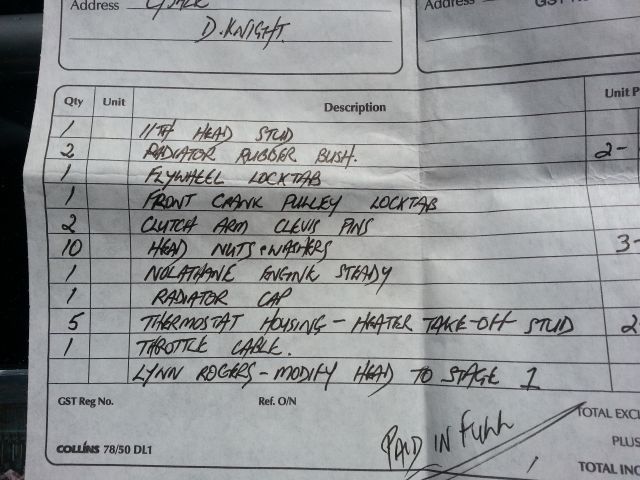 Address
D. KNIGHT.
Address
GST
Qty Unit Description Unit P
1 11TH HEAD STUD
2 RADIATOR RUBBER BUSH. 2-
1 FLYWHEEL LOCKTAB
1 FRONT CRANK PULLEY LOCKTAB
2 CLUTCH ARM CLEVIS PINS
10 HEAD NUTS & WASHERS 3-
1 NOLATHANE ENGINE STEADY
1 RADIATOR CAP
5 THERMOSTAT HOUSING - HEATER TAKE-OFF STUD 2
1 THROTTLE CABLE.
LYNN ROGERS - MODIFY HEAD TO STAGE 1
GST Reg No. Ref. O/N
PAID IN FULL
TOTAL EXCL
PLUS
TOTAL INC
COLLINS 78/50 DL1